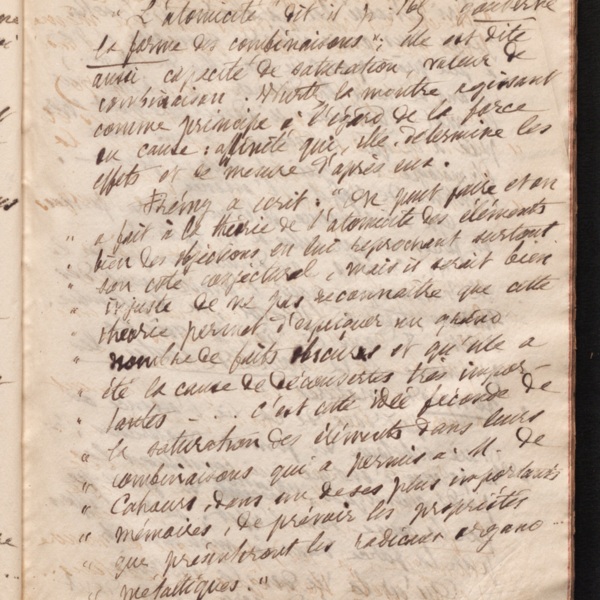 " L'atomicité dit il p. gouverne
la forme des combinaisons"; elle est dite
aussi capacité de saturation, valeur de
combinaison. Wurtz la montre agissant
comme principe à l'égard de la force
ou cause: affinité qui, elle, détermine les
effets et se mesure d'après eux.
Frémy a écrit: " On peut faire et on
" a fait à la théorie de l'atomicité des éléments
" bien des objections, en lui reprochant surtout
" son côté conjectural, mais il serait bien
" injuste de ne pas reconnaître que cette
" théorie permet d'expliquer un grand
" nombre de faits obscurs et qu'elle a
" été la cause de découvertes très impor-
" tantes ..... C'est cette idée féconde de
" la saturation des éléments dans leurs
" combinaisons qui a permis à M. de
" Cahours, dans un de ses plus importants
" mémoires, de prévoir les propriétés
" que présenteront les radicaux organo-
" métalliques."